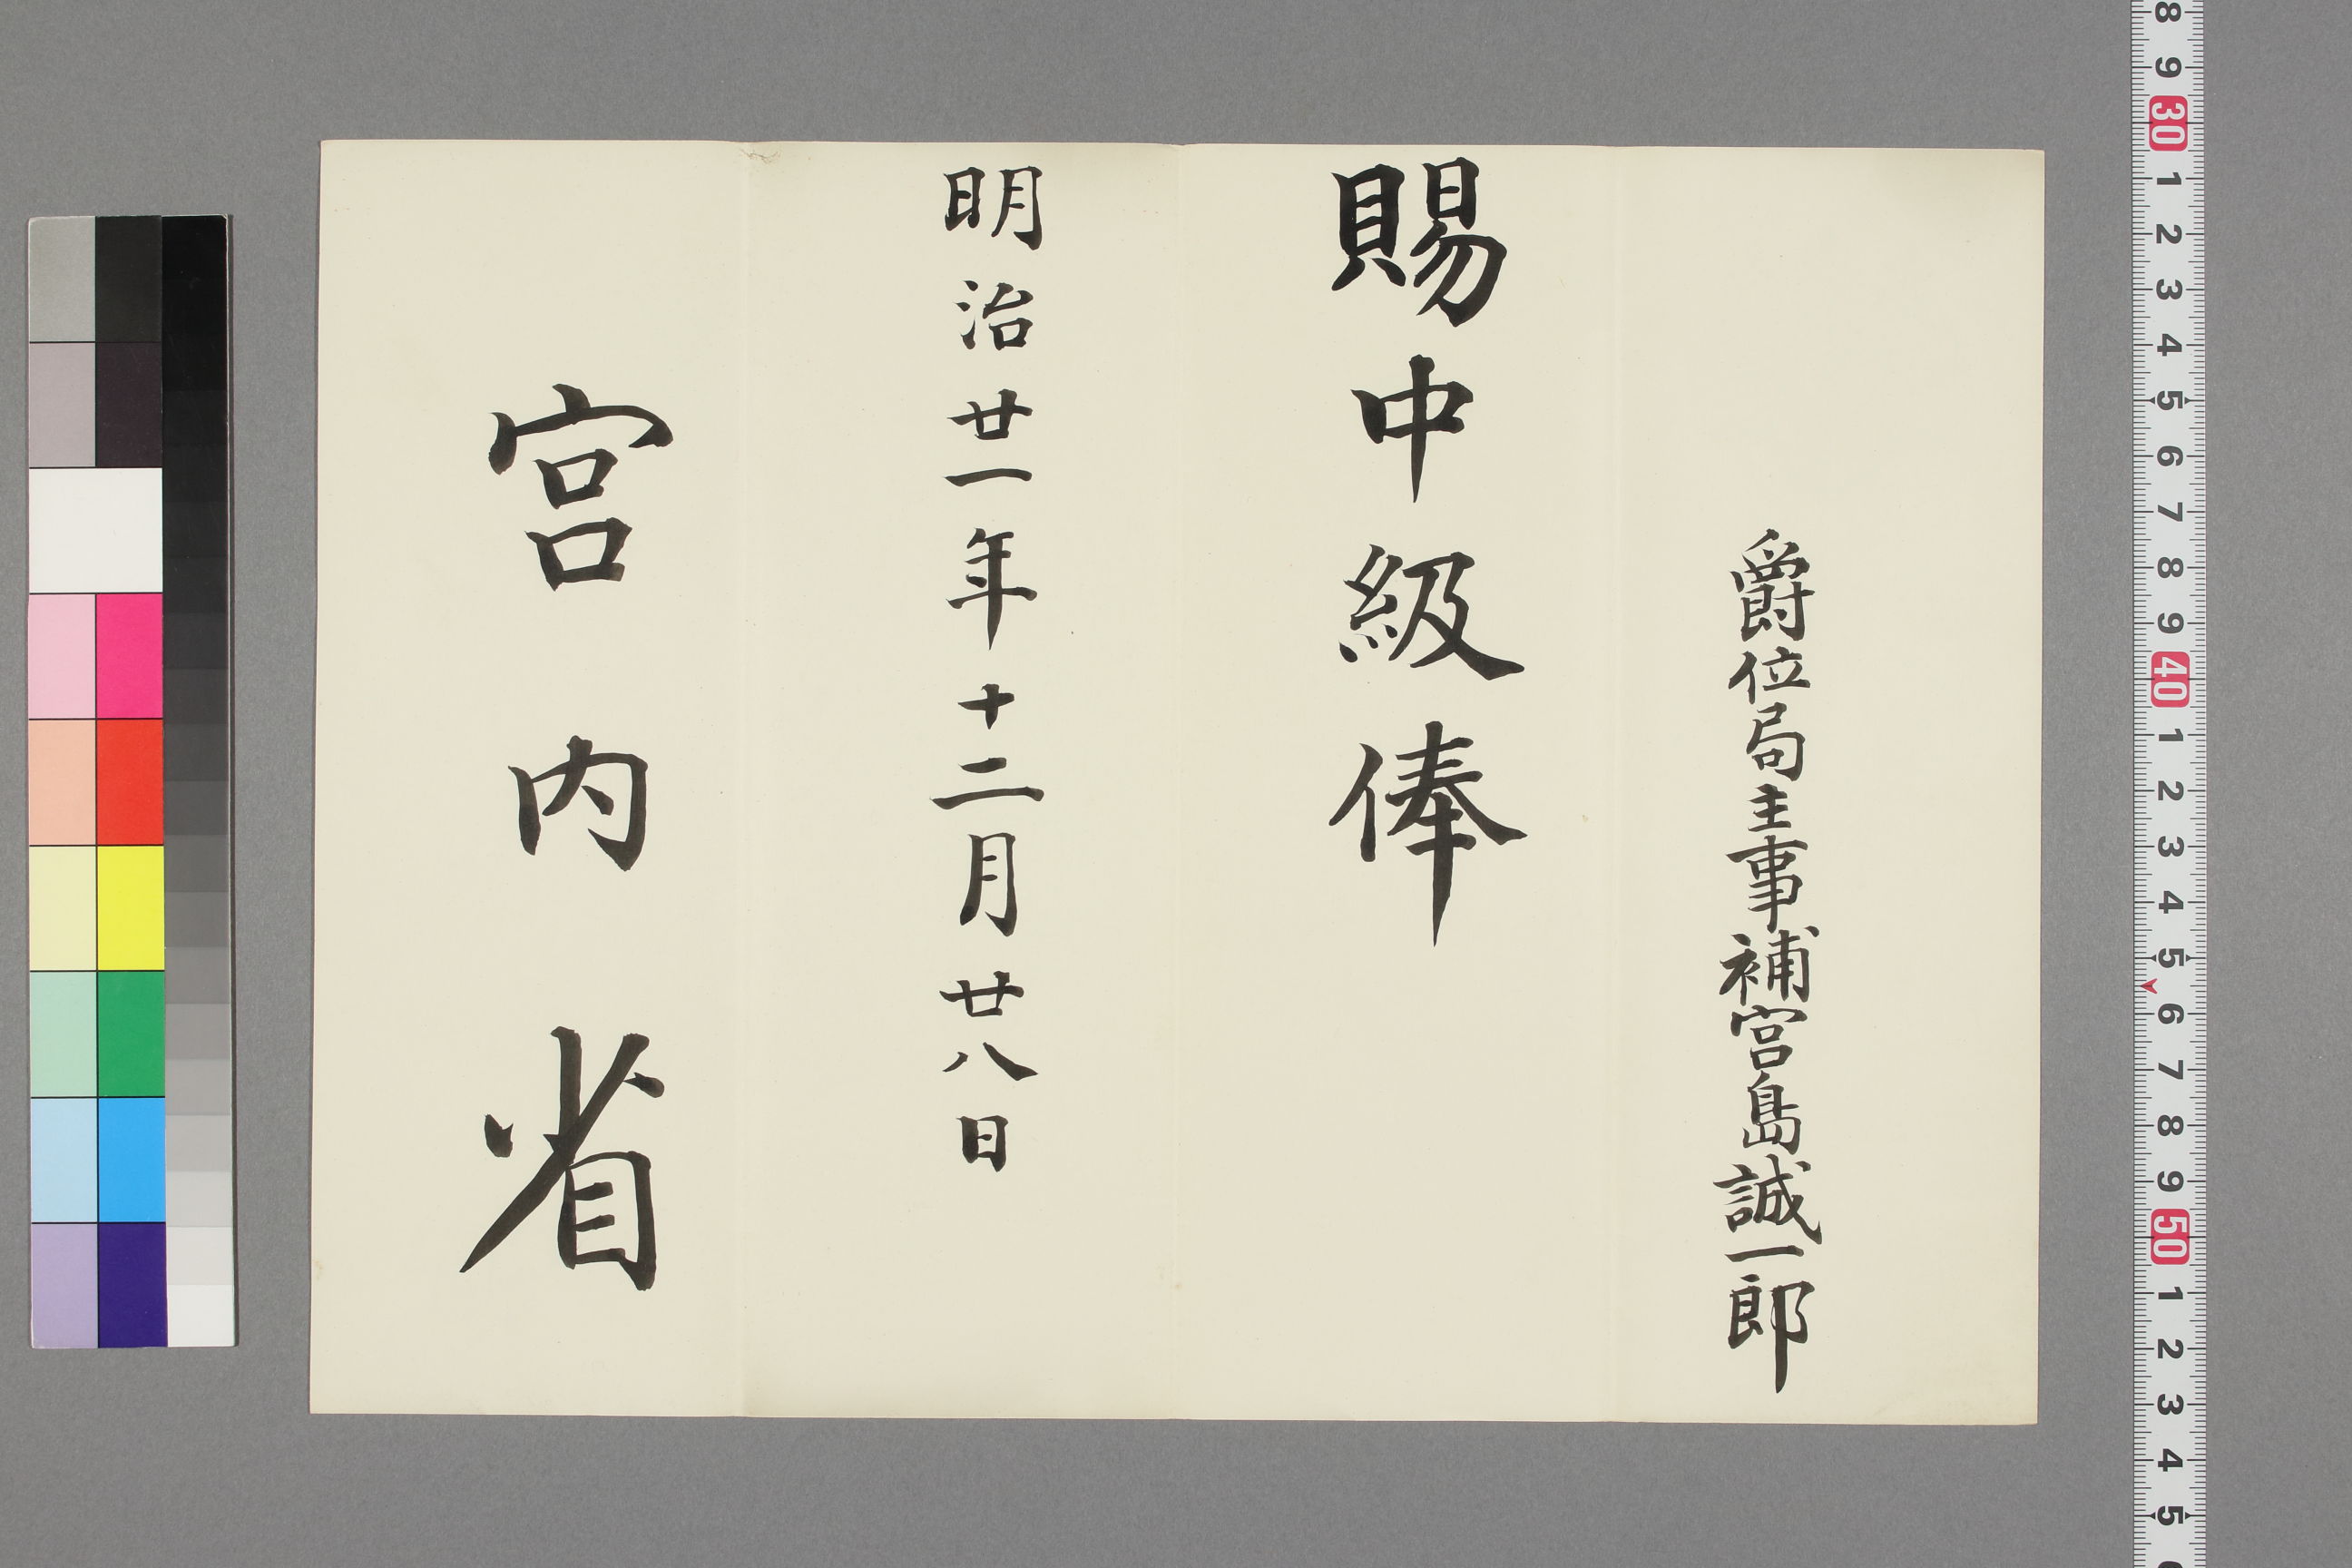 爵位局主事補宮島誠一郎
賜中級俸
明治廿一年十二月廿八日
宮内省
8 9 30 1 2 3 4 5 6 7 8 9 40 1 2 3 4 5 6 7 8 9 50 1 2 3 4 5